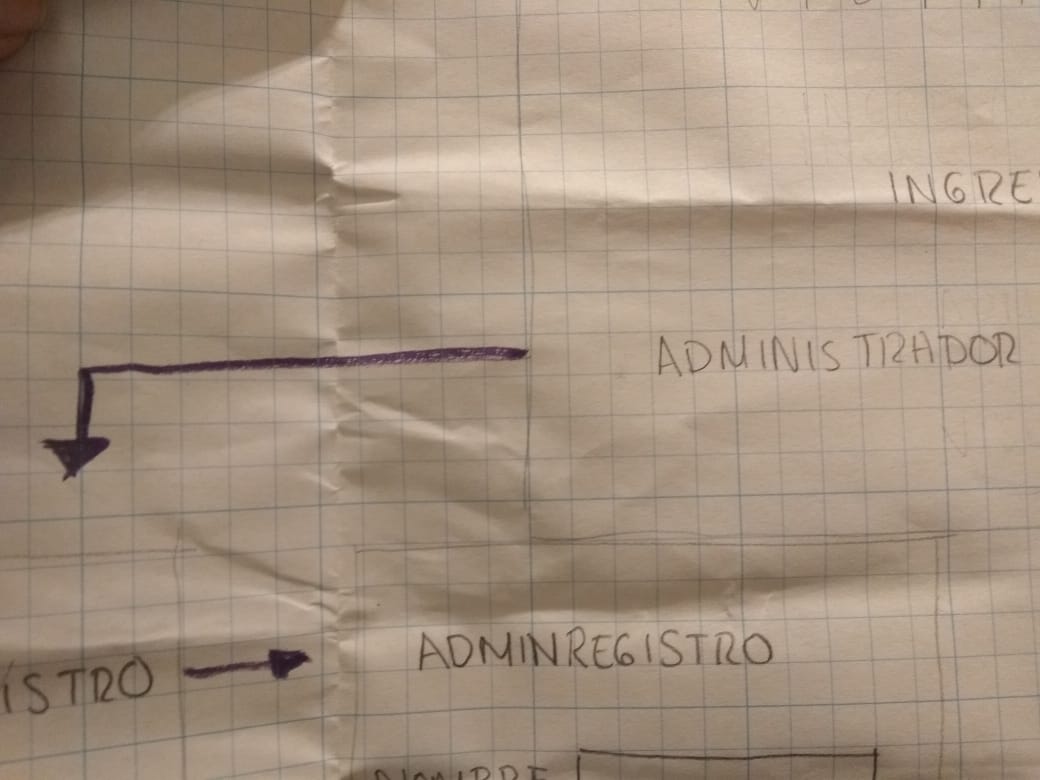 INGRE
ADMINISTRADOR
ISTRO
ADMINREGISTRO
NOMBRE